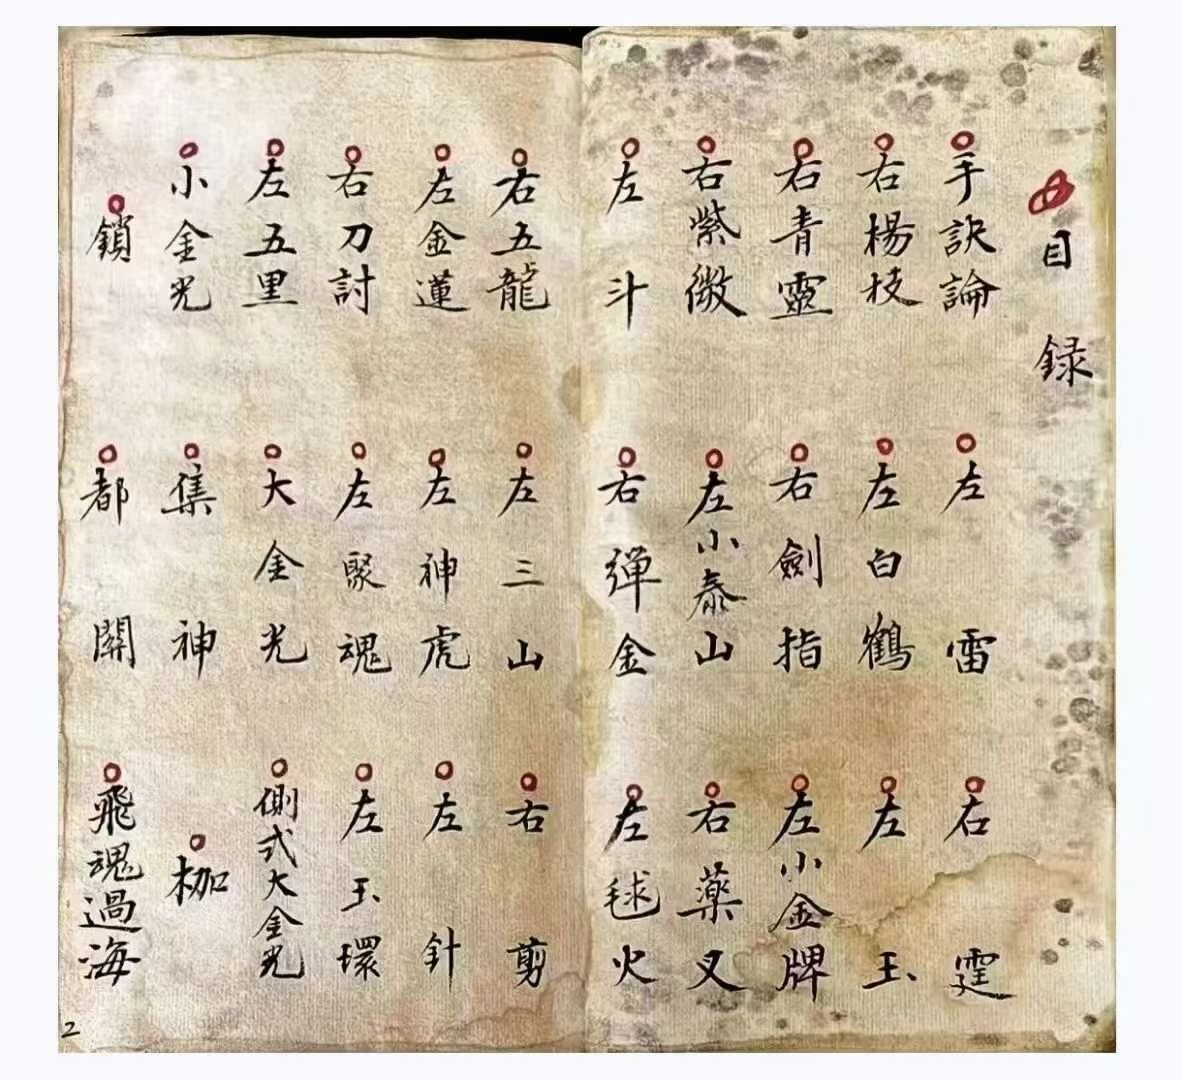 目録
手訣論 左雷 右霆
右楊枝 左白鶴 左玉
右青靈 右劍指 左小金牌
右紫微 左小泰山 右藥叉
左斗 右彈金 左毬火
右五龍 左三山 右剪
左金蓮 左神虎 左針
右刀討 左聚魂 左玉環
左五里 大金光 側式大金光
小金光 集神 枷
鎖 都關 飛魂過海
2